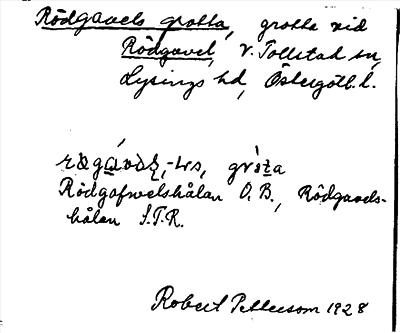 Rödgavels grotta, grotta vid
Rödgavel, V. Tollstad sn,
Lysings hd, Östergötl. l.
-ls,
Rödgafwelshålan O. B., Rödgavels-
hålan S.T.R.
Robert Pettersson 1928